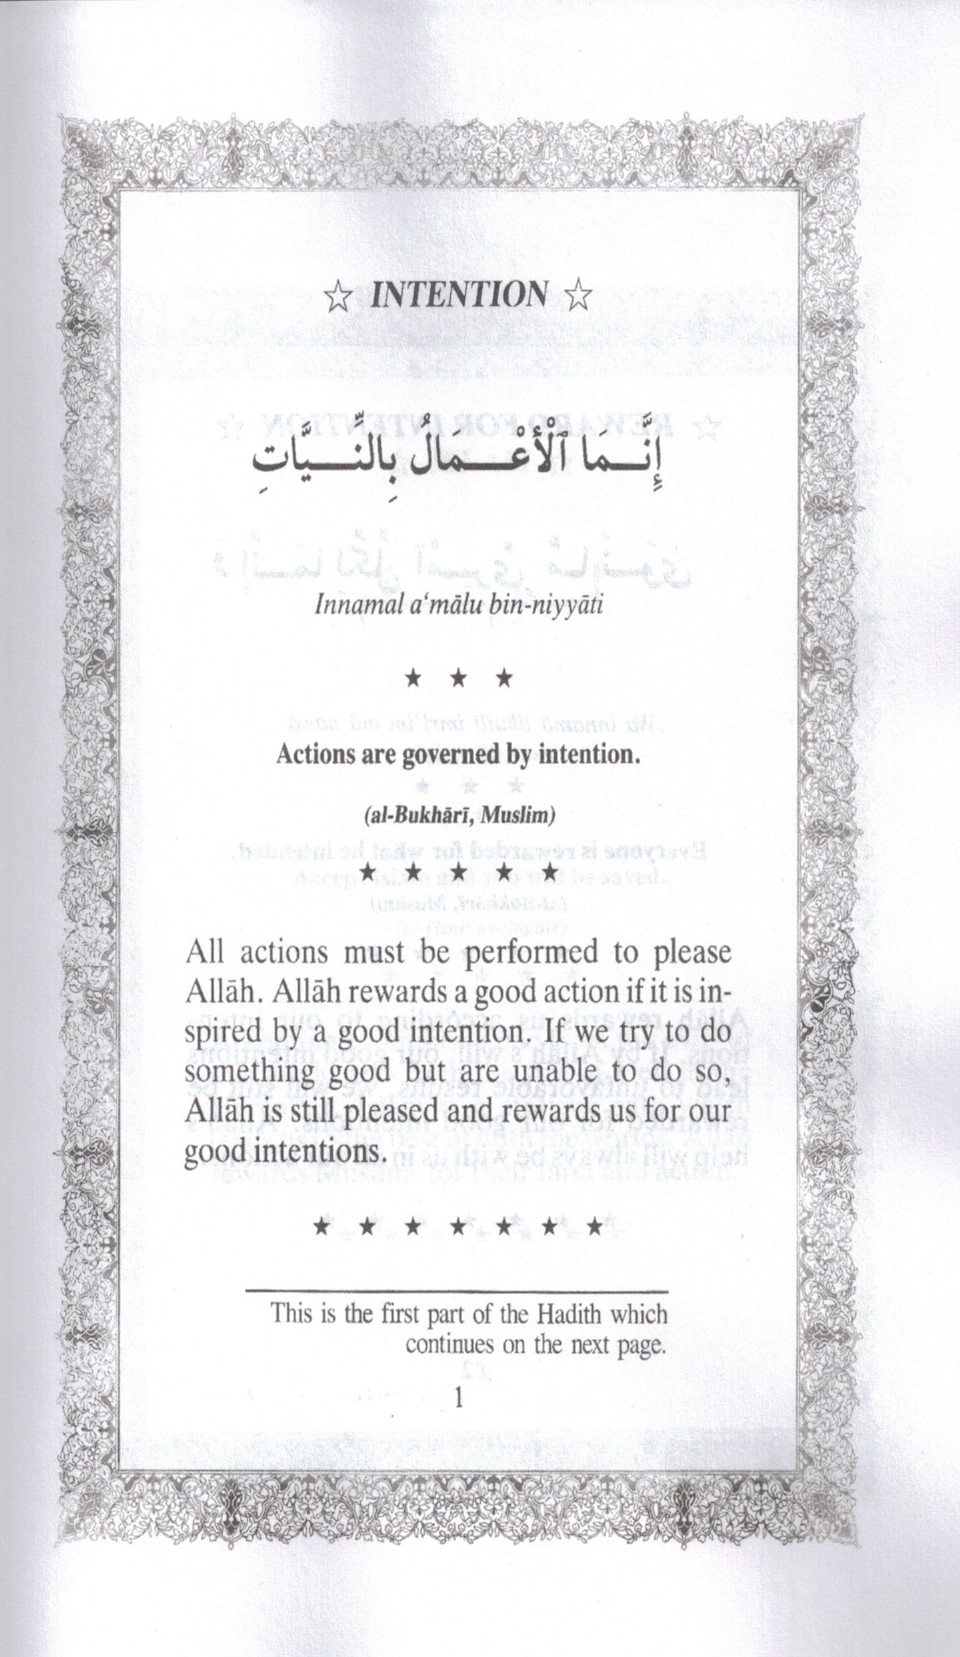 ☆ INTENTION ☆
إِنَّمَا ٱلْأَعْمَالُ بِالنِّيَّاتِ
Innamal a‘mālu bin-niyyāti
★ ★ ★
Actions are governed by intention.
(al-Bukhārī, Muslim)
★ ★ ★ ★ ★
All actions must be performed to please
Allāh. Allāh rewards a good action if it is in-
spired by a good intention. If we try to do
something good but are unable to do so,
Allāh is still pleased and rewards us for our
good intentions.
★ ★ ★ ★ ★ ★ ★
This is the first part of the Hadith which
continues on the next page.
1